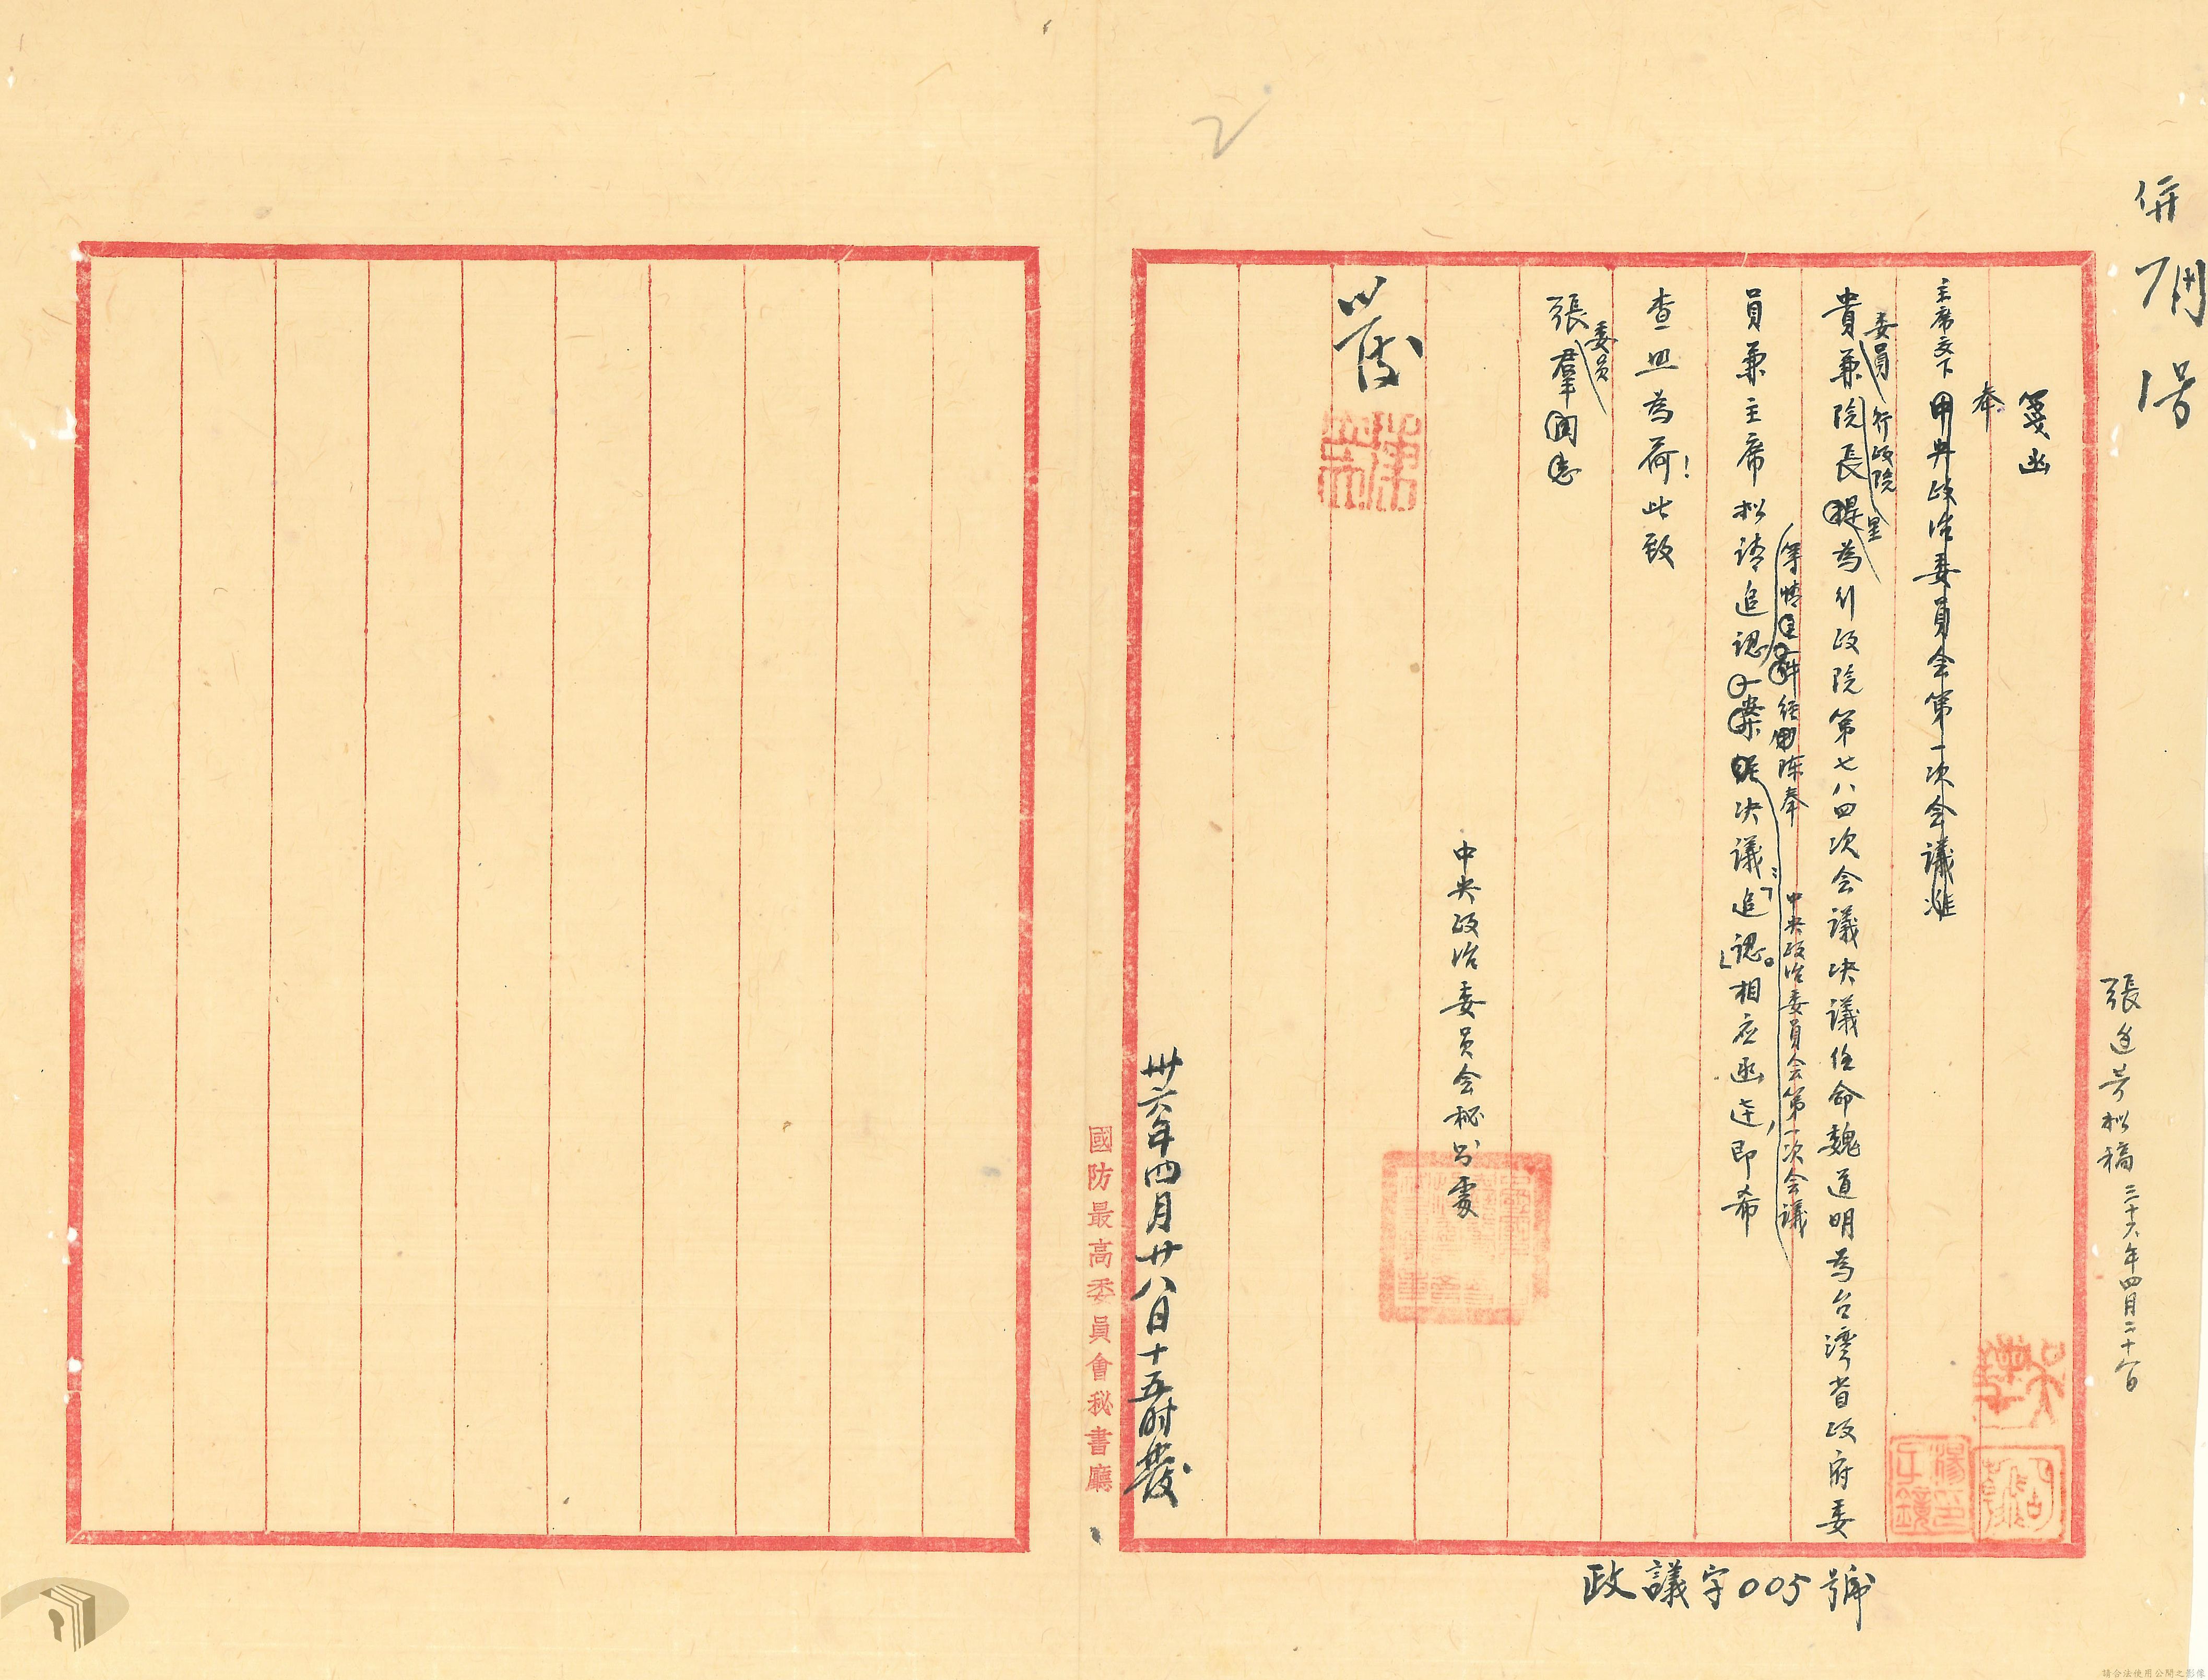 併刪
張
拟稿 三十六年四月二十八日
箋函
奉
主席交下中央政治委員会第一次会議准
委員 行政院 呈
貴兼院長提為行政院第七八四次会議決議任命魏道明為台湾省政府委
等情 一件 經 陈奉
中央政治委員会第一次会議
員兼主席拟請追認一案 經決議：「追認。」相应函达，即希
查照為荷！此致
委員
張羣同志
中央政治委員会秘书處
發
卅六年四月廿八日十五时發
國防最高委員會秘書廳
政議字005號
2
請合法使用公開之影像